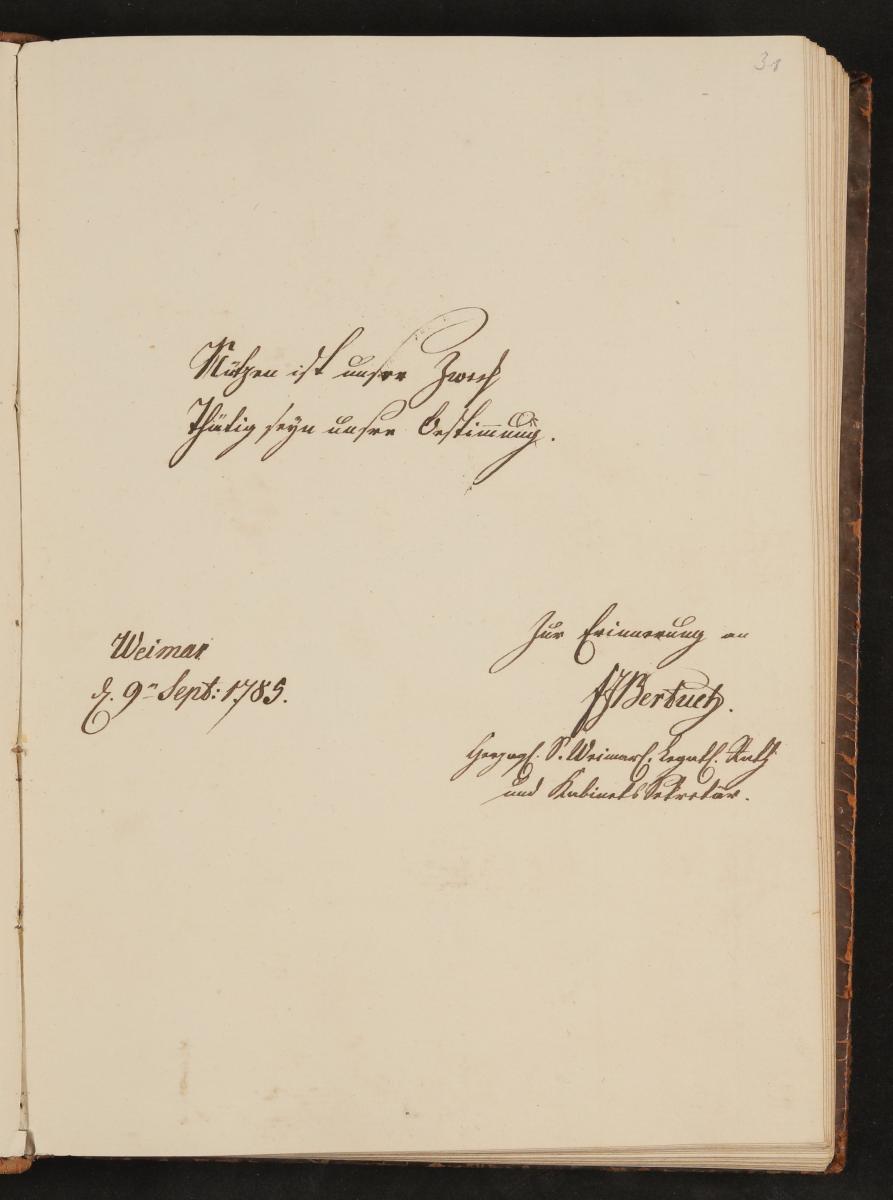 31
Nützen ist unser Zweck
Thätig seyn unsre Bestimmung.
Weimar
d. 9n Sept: 1785.
Zur Erinnerung an
FJBertuch.
Herzogl. S. Weimarl. Legatl. Rath
und Kabinets Sekretär.